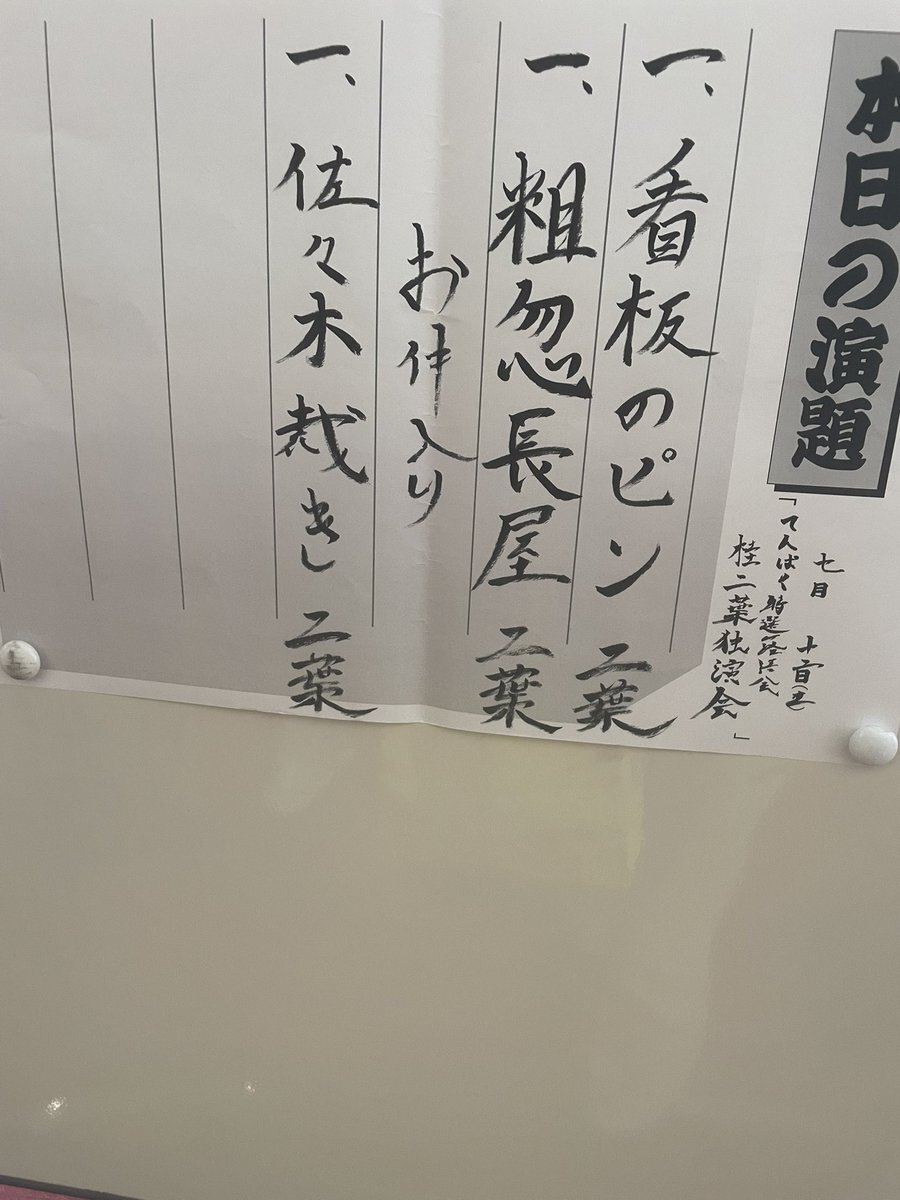 本日の演題
七月 十一日(土)
「てんぱく特選落語会
桂二葉独演会」
一、看板のピン 二葉
一、粗忽長屋 二葉
お仲入り
一、佐々木裁き 二葉